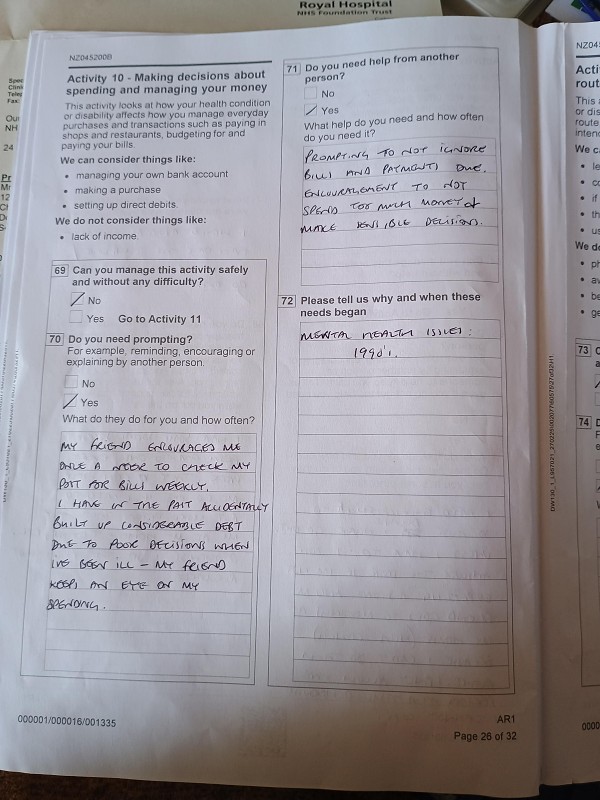 Royal Hospital
NHS Foundation Trust
NZ045200B
Activity 10 - Making decisions about
spending and managing your money
This activity looks at how your health condition
or disability affects how you manage everyday
purchases and transactions such as paying in
shops and restaurants, budgeting for and
paying your bills.
We can consider things like:
• managing your own bank account
• making a purchase
• setting up direct debits.
We do not consider things like:
• lack of income
69 Can you manage this activity safely
and without any difficulty?
No
Yes Go to Activity 11
70 Do you need prompting?
For example, reminding, encouraging or
explaining by another person.
No
Yes
What do they do for you and how often?
MY FRIEND ENCOURAGES ME
ONCE A WEEK TO CHECK MY
POST FOR BILLS WEEKLY.
I HAVE IN THE PAST ACCIDENTALLY
BUILT UP CONSIDERABLE DEBT
DUE TO POOR DECISIONS WHEN
IVE BEEN ILL - MY FRIEND
KEEPS AN EYE ON MY
SPENDING.
71 Do you need help from another
person?
No
Yes
What help do you need and how often
do you need it?
PROMPTING TO NOT IGNORE
BILLS AND PAYMENTS DUE.
ENCOURAGEMENT TO NOT
SPEND TOO MUCH MONEY &
MAKE SENSIBLE DECISIONS.
72 Please tell us why and when these
needs began
MENTAL HEALTH ISSUES:
1990's.
000001/000016/001335
AR1
Page 26 of 32
NZ04
Acti
rout
This
or dis
route
We c
We d
73
74
0000